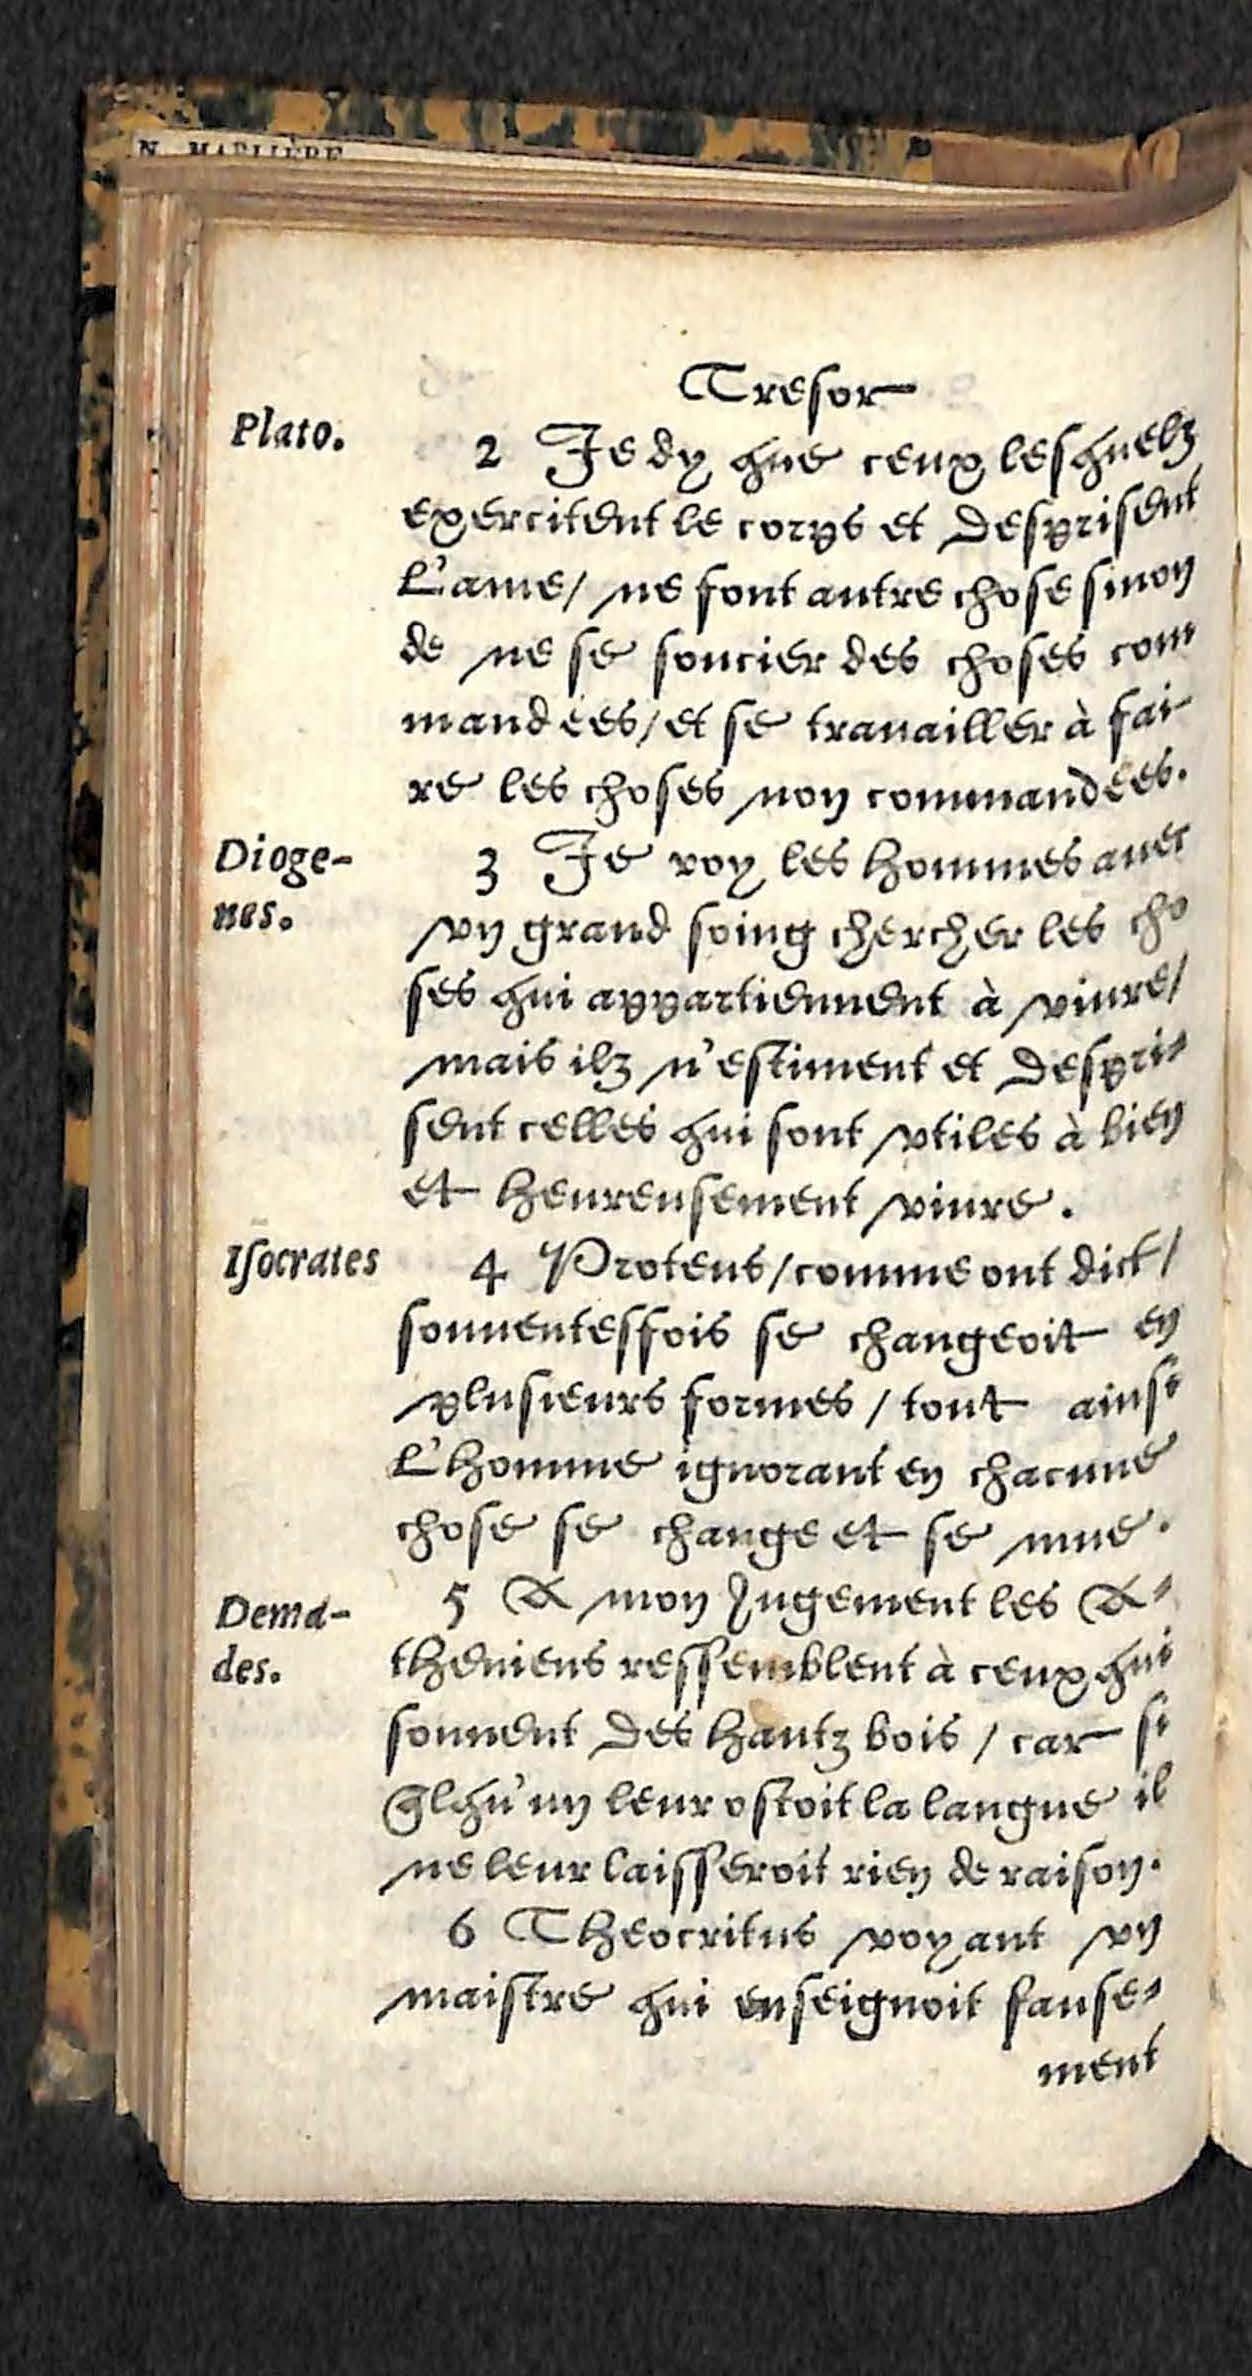 Tresor
Plato.
2 Je dy que ceux lesquelz
exercitent le corps et desprisent
l'ame / ne font autre chose sinon
de ne se soucier des choses com
mandées / et se trauailler à fai-
re les choses non commandées.
Dioge-
nes.
3 Je voy les hommes auec
vn grand soing chercher les cho
ses qui appartiennent à viure /
mais ilz n'estiment et despri-
sent celles qui sont vtiles à bien
et heureusement viure.
Isocrates
4 Proteus / comme ont dict /
souuentesfois se changeoit en
plusieurs formes / tout ainsi
l'homme ignorant en chacune
chose se change et se mue.
Dema-
des.
5 A mon Jugement les A-
theniens ressemblent à ceux qui
sonnent des hautz bois / car si
qlqu'un leur ostoit la langue il
ne leur laisseroit rien de raison.
6 Theocritus voyant vn
maistre qui enseignoit fause-
ment